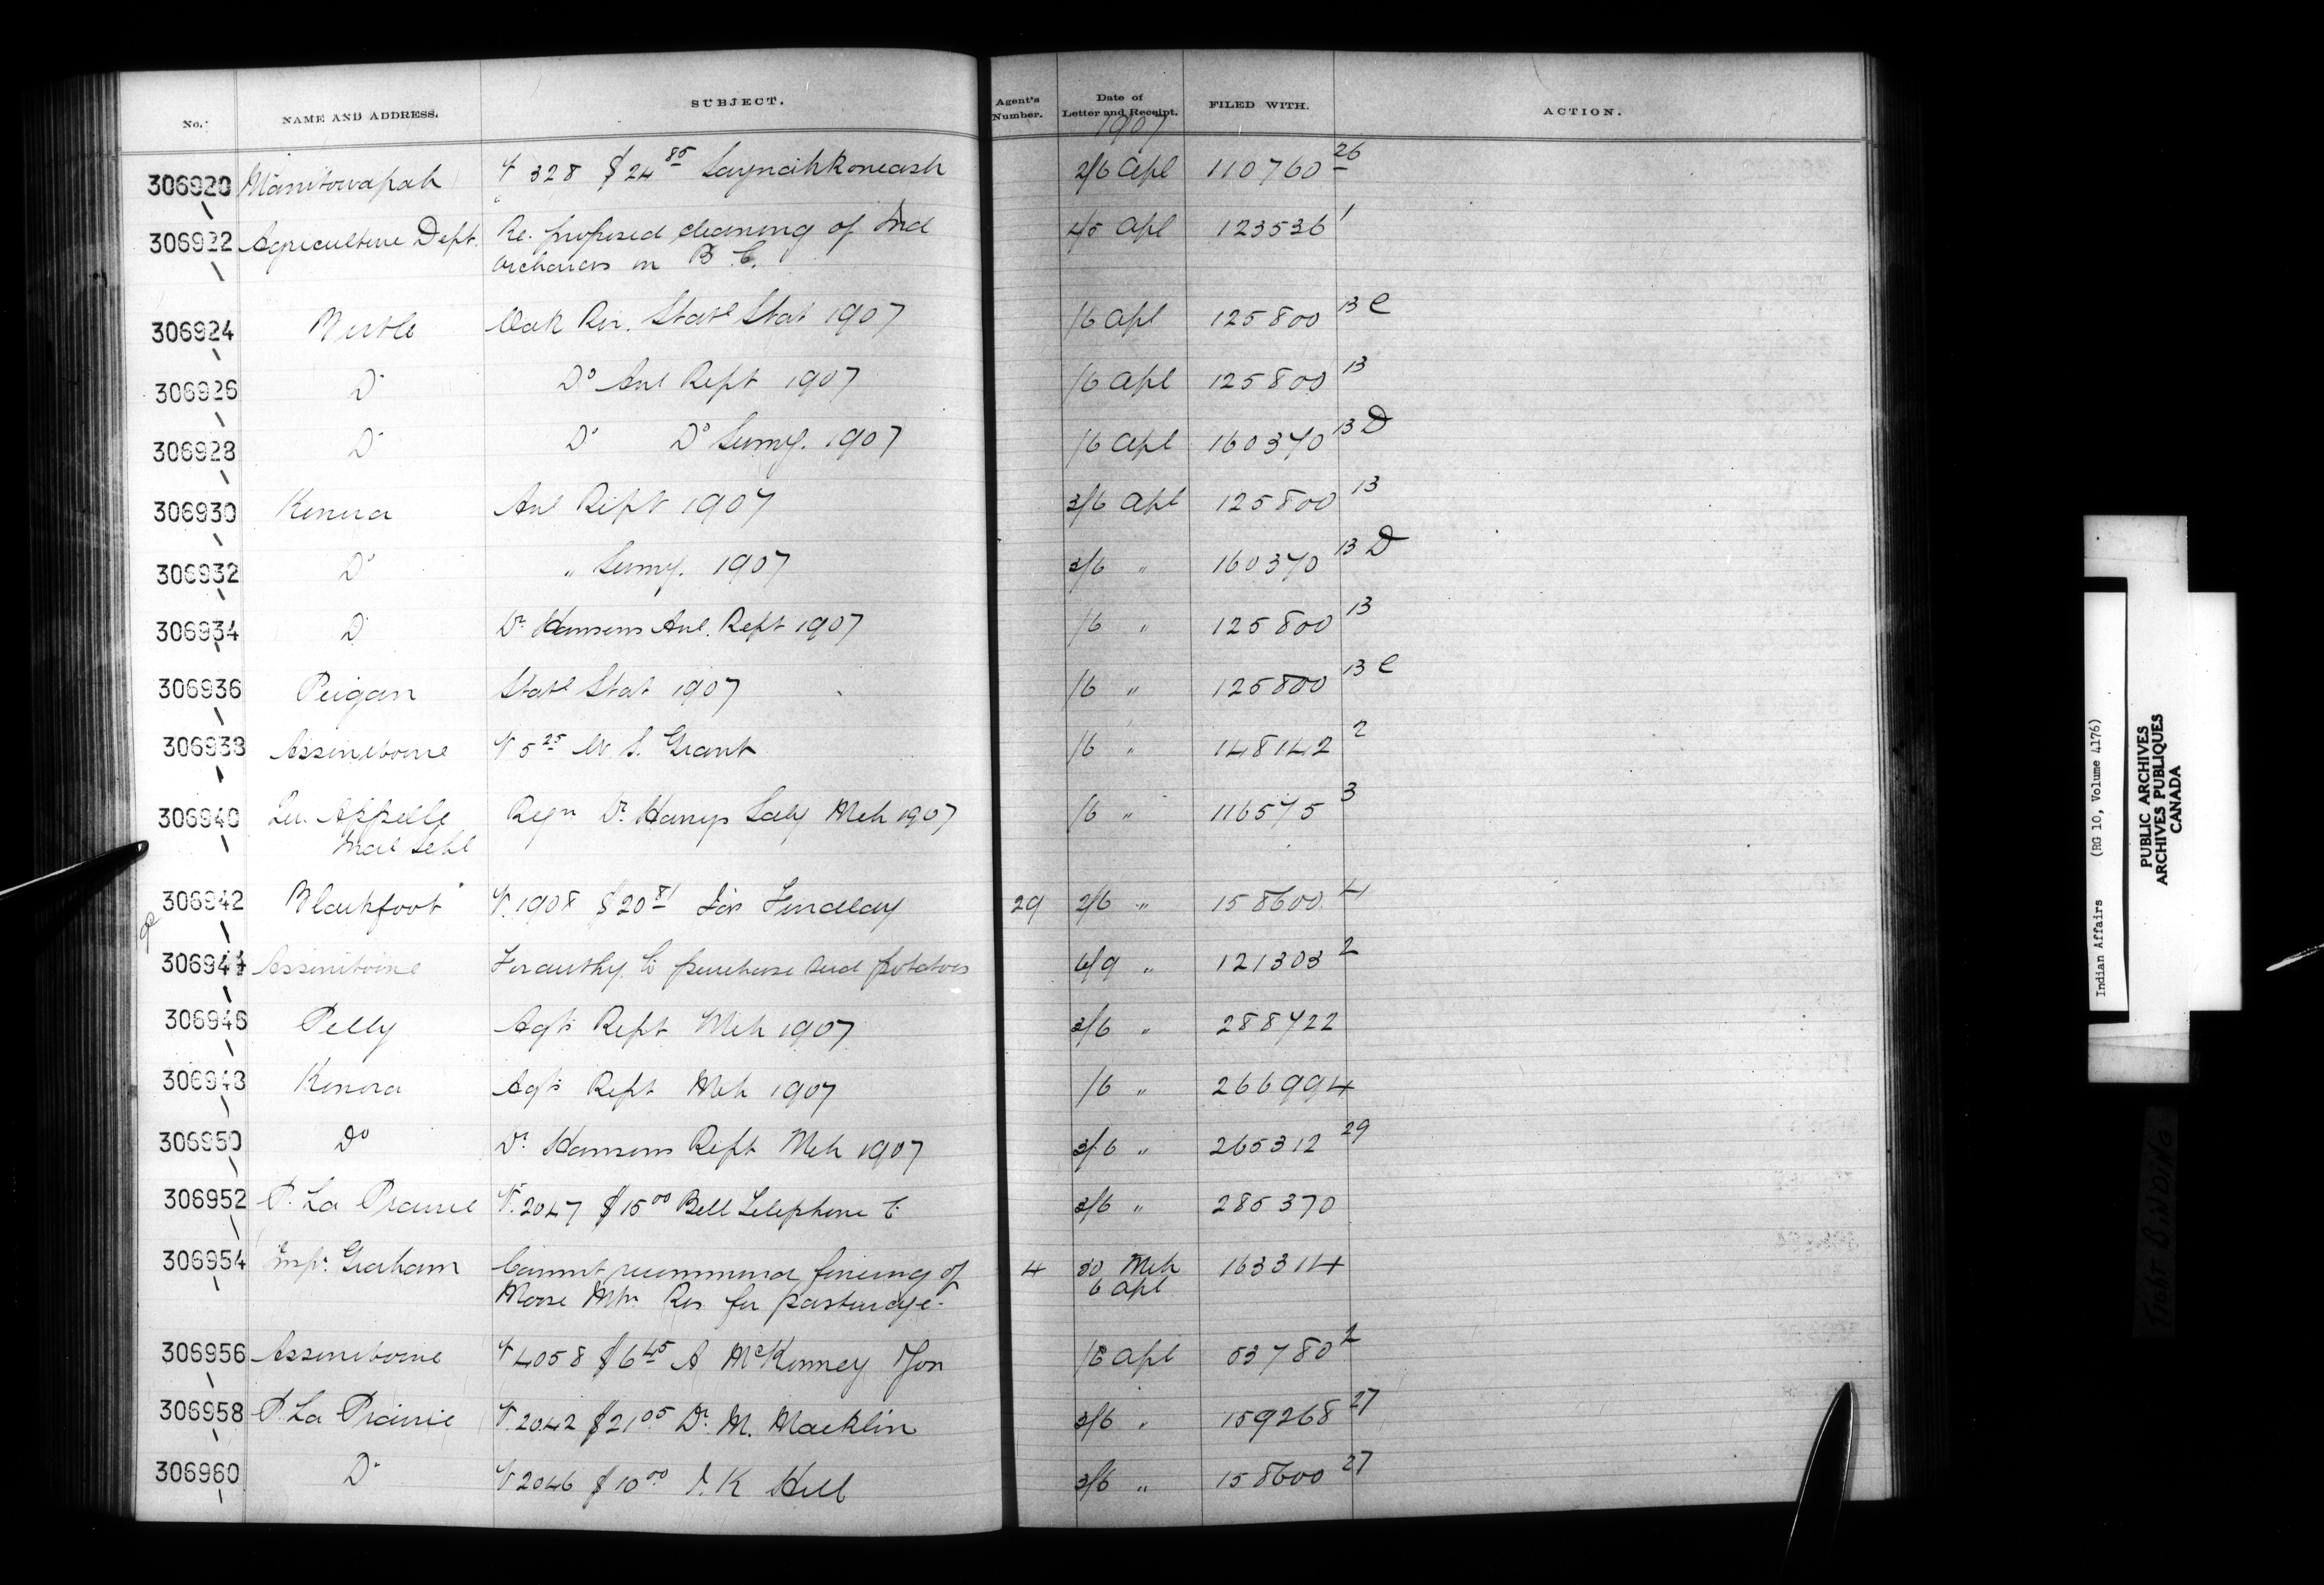 No. NAME AND ADDRESS. SUBJECT. Agent's Number. Date of Letter and Receipt. FILED WITH. ACTION.
1907
306920 Manitowapah V 328 $24 85 2/6 Apl 110760 26
306922 Agriculture Dept. Re. proposed cleaning of Ind 4/5 Apl 123536 1
orchards in B. C.
306924 Birtle Oak Rer. Statl Stat 1907 /6 Apl 125800 13 C
306926 Do Do Anl Rept 1907 /6 Apl 125800 13
306928 Do Do Do Sumy. 1907 /6 Apl 160370 13 D
306930 Kenora Anl Rept 1907 3/6 Apl 125800 13
306932 Do " Sumy. 1907 3/6 " 160370 13 D
306934 Do Dr Hansens Anl. Rept 1907 /6 " 125800 13
306936 Peigan Statl Stat 1907 /6 " 125800 13 C
306938 Assiniboine V 5 25 W. S. Grant /6 " 148142 2
306940 Qu. Appelle Regn Dr. Saly Mch 1907 /6 " 116575 3
Indl Schl
306942 Blackfoot V. 1908 $20 81 Jas Findlay 29 2/6 " 158600 4
306944 Assiniboine For authy. to purchase seed potatoes 6/9 " 121303 2
306946 Pelly Agts Rept Mch 1907 3/6 " 288422
306948 Kenora Agts Rept Mch 1907 /6 " 266994
306950 Do Dr. Hansens Rept Mch 1907 3/6 " 265312 29
306952 P. La Prairie V. 2047 $15 00 Bell Telephone C 3/6 " 285370
306954 Inspr. Graham Cannot recommend fencing of 4 30 Mch 163314
Moose Mtn Res for pasturage. 6 Apl
306956 Assiniboine V 4058 $6 45 A McKenney /6 Apl 53780 2
306958 P. La Prairie V. 2042 $21 05 Dr. M. Macklin 3/6 " 159268 27
306960 Do V 2046 $10 00 K Hill 3/6 " 158600 27
Indian Affairs (RG 10, Volume 4176)
PUBLIC ARCHIVES
ARCHIVES PUBLIQUES
CANADA
TIGHT BINDING